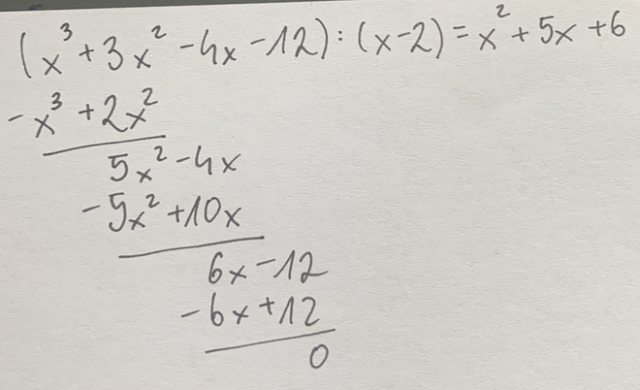 (x³ + 3x² - 4x - 12) : (x - 2) = x² + 5x + 6
- x³ + 2x²
5x² - 4x
- 5x² + 10x
6x - 12
- 6x + 12
0